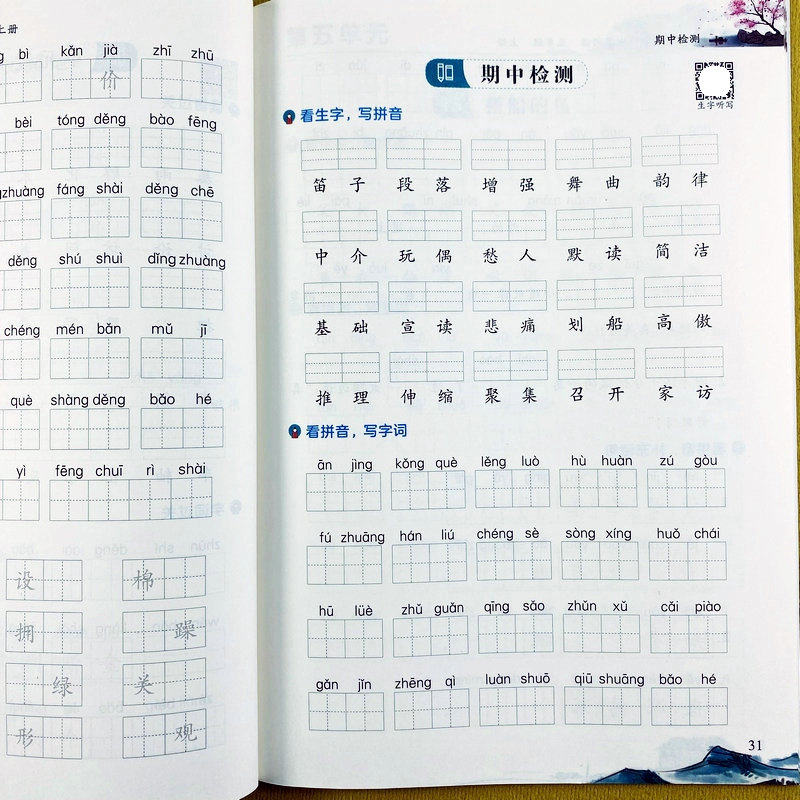 上册
bì kǎn jià zhī zhū
价
bèi tóng děng bào fēng
zhuàng fáng shài děng chē
děng shú shuì dīng zhuàng
chéng mén bǎn mǔ jī
què shàng děng bǎo hé
yì fēng chuī rì shài
设 棉
拥 躁
绿 关
形 观
期中检测
期中检测
生字听写
看生字，写拼音
笛子 段落 增强 舞曲 韵律
中介 玩偶 愁人 默读 简洁
基础 宣读 悲痛 划船 高傲
推理 伸缩 聚集 召开 家访
看拼音，写字词
ān jìng kǒng què lěng luò hù huàn zú gòu
fú zhuāng hán liú chéng sè sòng xíng huǒ chái
hū lüè zhǔ guǎn qīng sǎo zhǔn xǔ cǎi piào
gǎn jǐn zhēng qì luàn shuō qiū shuāng bǎo hé
31